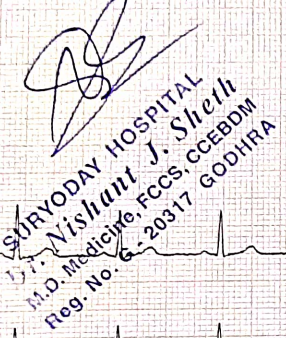 SURYODAY HOSPITAL
Dr. Nishant J. Sheth
M.D. Medicine, FCCS, CCEBDM
Reg. No. G - 20317 GODHRA